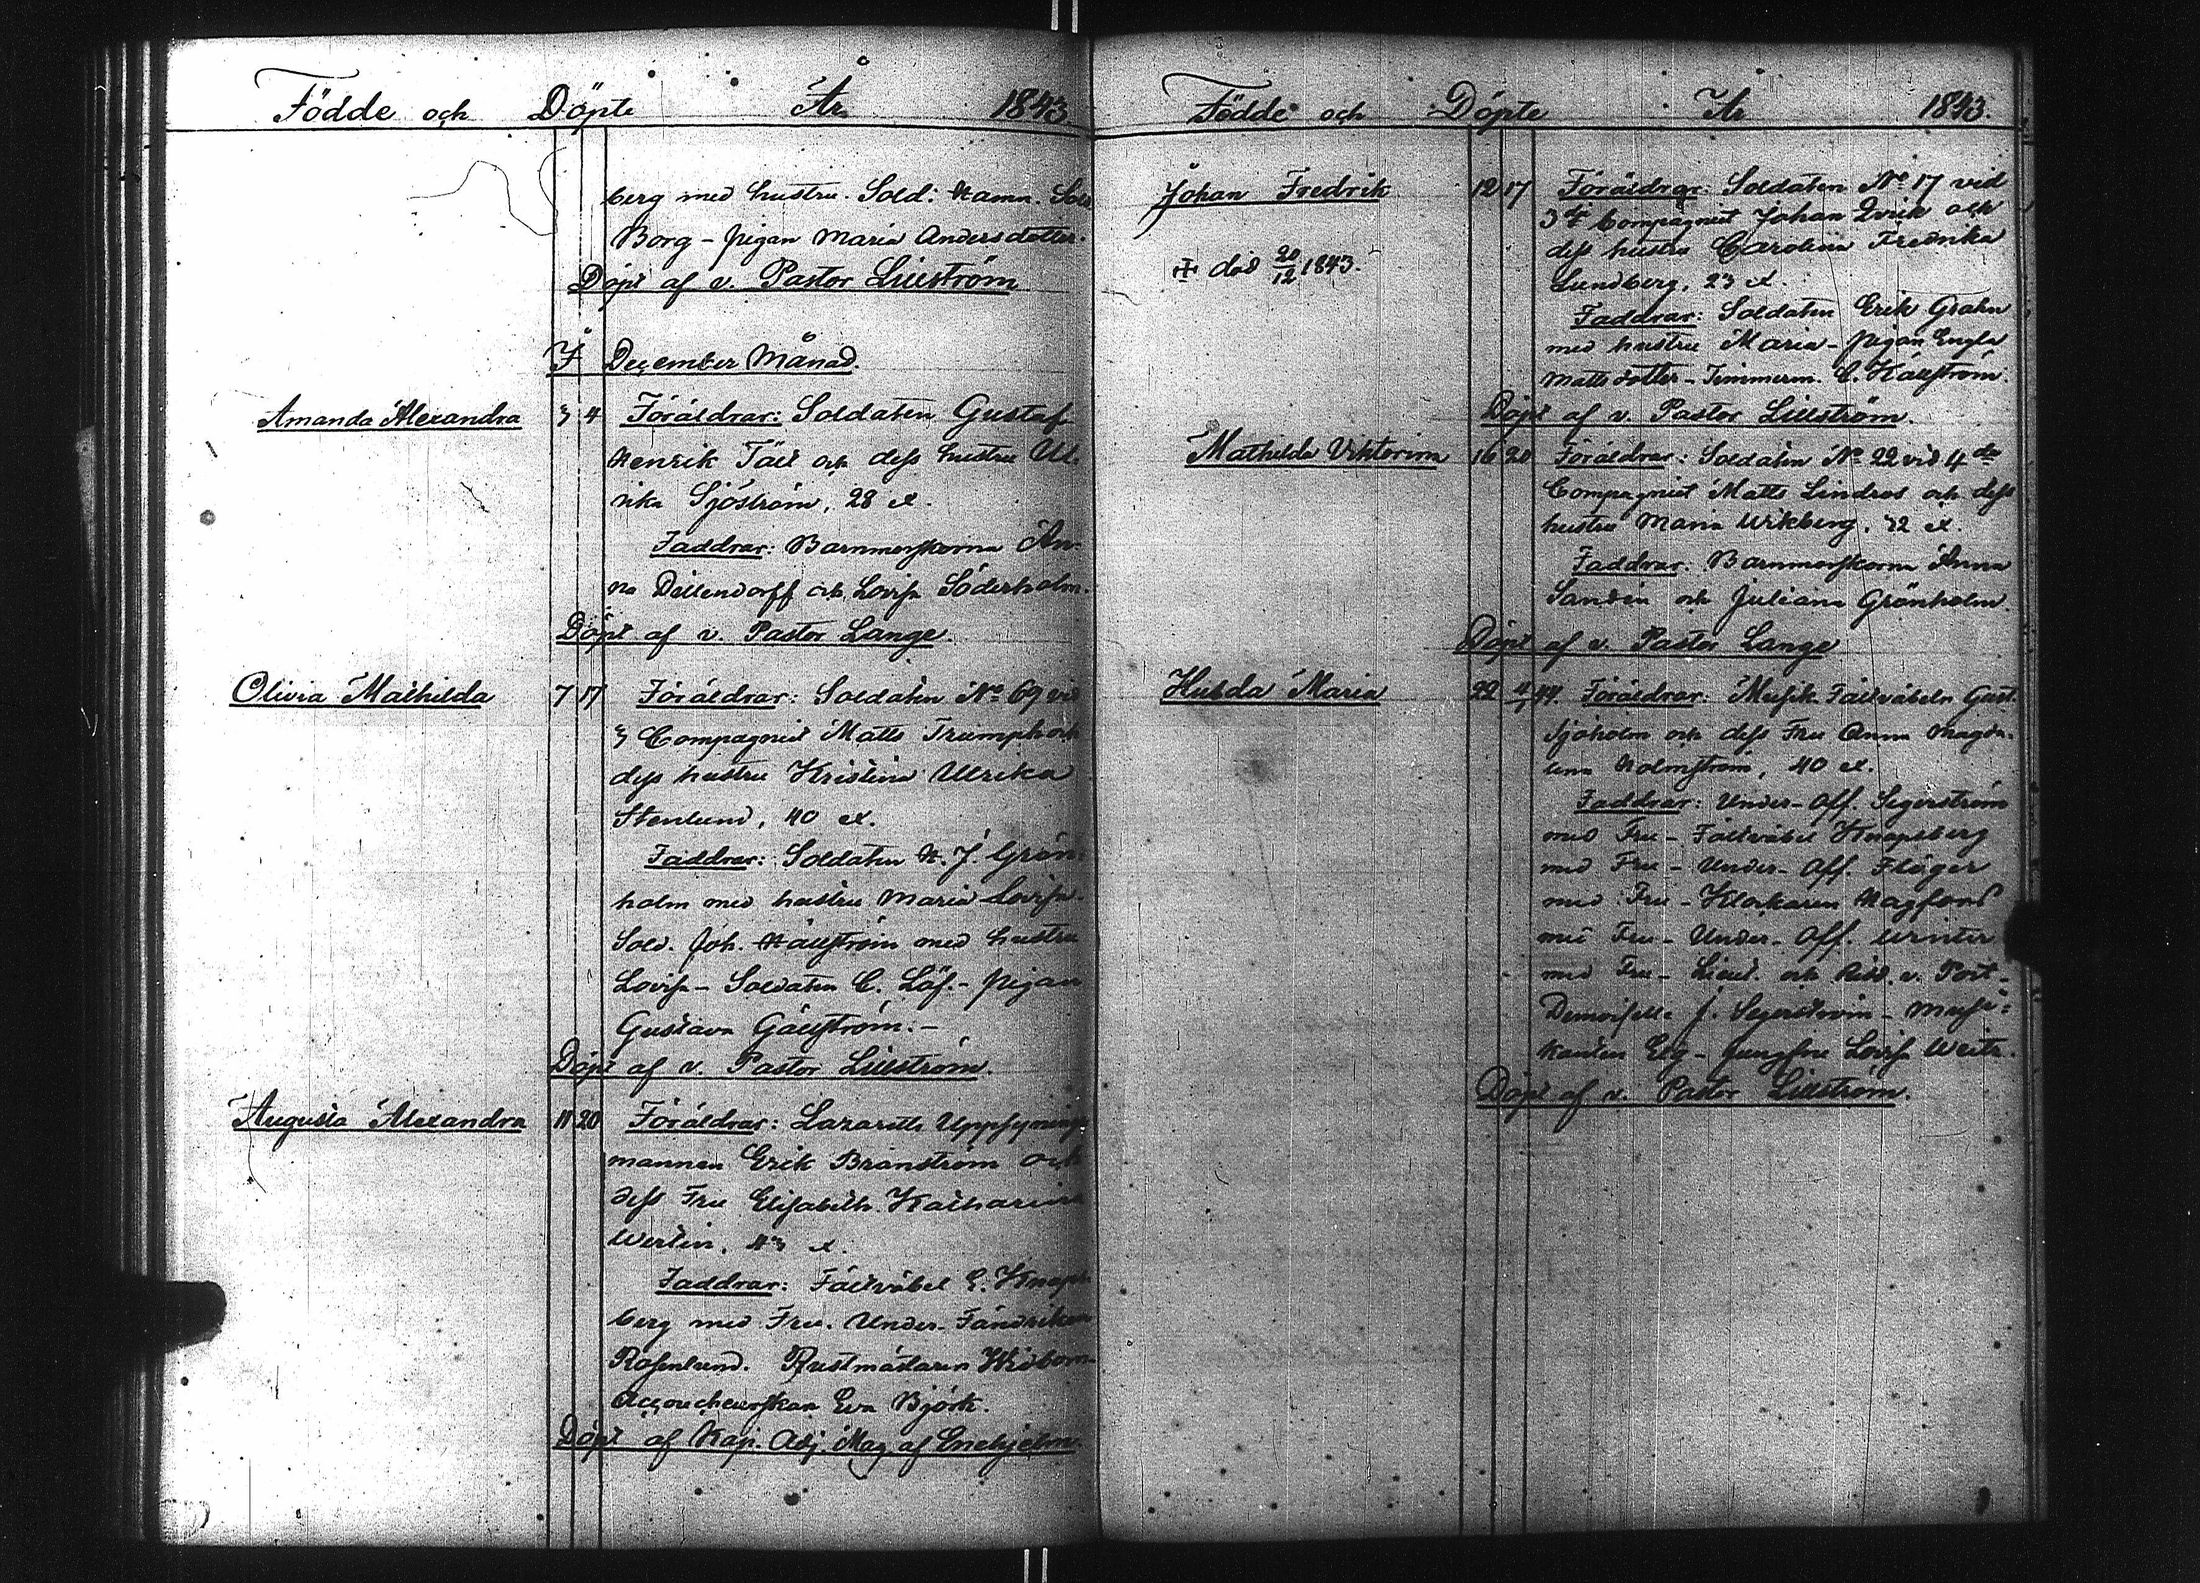 Födde och Döpte År 1843
berg med hustru. Sold. Hamn. Sold
Borg - pigan Maria Andersdotter.
Döpt af v. Pastor Lillström
I December Månad.
Amanda Alexandra 3 4 Föräldrar: Soldaten Gustaf
Henrik Täll och dess hustru Ul-
rika Sjöström, 28 år.
Faddrar: Barnmorskorna An-
na Dellendorff och Lovisa Söderholm.
Döpt af v. Pastor Lange.
Olivia Mathilda 7 17 Föräldrar: Soldaten No 69 vid
3 Compagniet Matts Triumph och
dess hustru Kristina Ulrika
Stenlund, 40 år.
Faddrar: Soldaten H. J. Grön-
holm med hustru Maria Lovisa-
Sold. Joh. Hällström med hustru
Lovisa - Soldaten C. Löf. - pigan
Gustava Gällström. -
Döpt af v. Pastor Lillström
Augusta Alexandra 11 20 Föräldrar: Lazaretts Uppsynings
mannen Erik Brånström och
dess Fru Elisabeth Katharina
Werlin, 43 år.
Faddrar: Fältväbel E. Knaps-
berg med Fru. Under-Fändriken
Rosenlund. Rustmästaren Widbom-
Accoucheurskan Eva Björk.
Döpt af Kap. Adj. Mag. af Enehjelm.
Födde och Döpte År 1843.
Johan Fredrik 12 17 Föräldrar: Soldaten No 17 vid
3dje Compagniet Johan Qvick och
dess hustru Carolina Fredrika
Lundberg, 23 år.
‡ död 20/12 1843.
Faddrar: Soldaten Erik Grahn
med hustru Maria - pigan Engla
Mattsdotter - Timmerm. C. Källström.
Döpt af v. Pastor Lillström.
Mathilda Viktorina 16 20 Föräldrar: Soldaten No 22 vid 4de
Compagniet Matts Lindros och dess
hustru Maria Wikberg, 32 år.
Faddrar: Barnmorskorna Anna
Sandin och Juliana Grönholm.
Döpt af v. Pastor Lange
Hulda Maria 22 4/1 44. Föräldrar: Musik Fältväbeln Gust.
Sjöholm och dess Fru Anna Magda-
lena Holmström, 40 år.
Faddrar: Under-Off. Segerström
med Fru - Fältväbel Knapsberg
med Fru - Under-Off. Flöger
med Fru - Klockaren Hagfors
med Fru - Under-Off. Winter
med Fru - Lieut. och Ridd. v. Post-
Demoiselle J. Segerström - Musi-
kanten Elg - Jungfru Lovisa Weitz.
Döpt af v. Pastor Lillström.